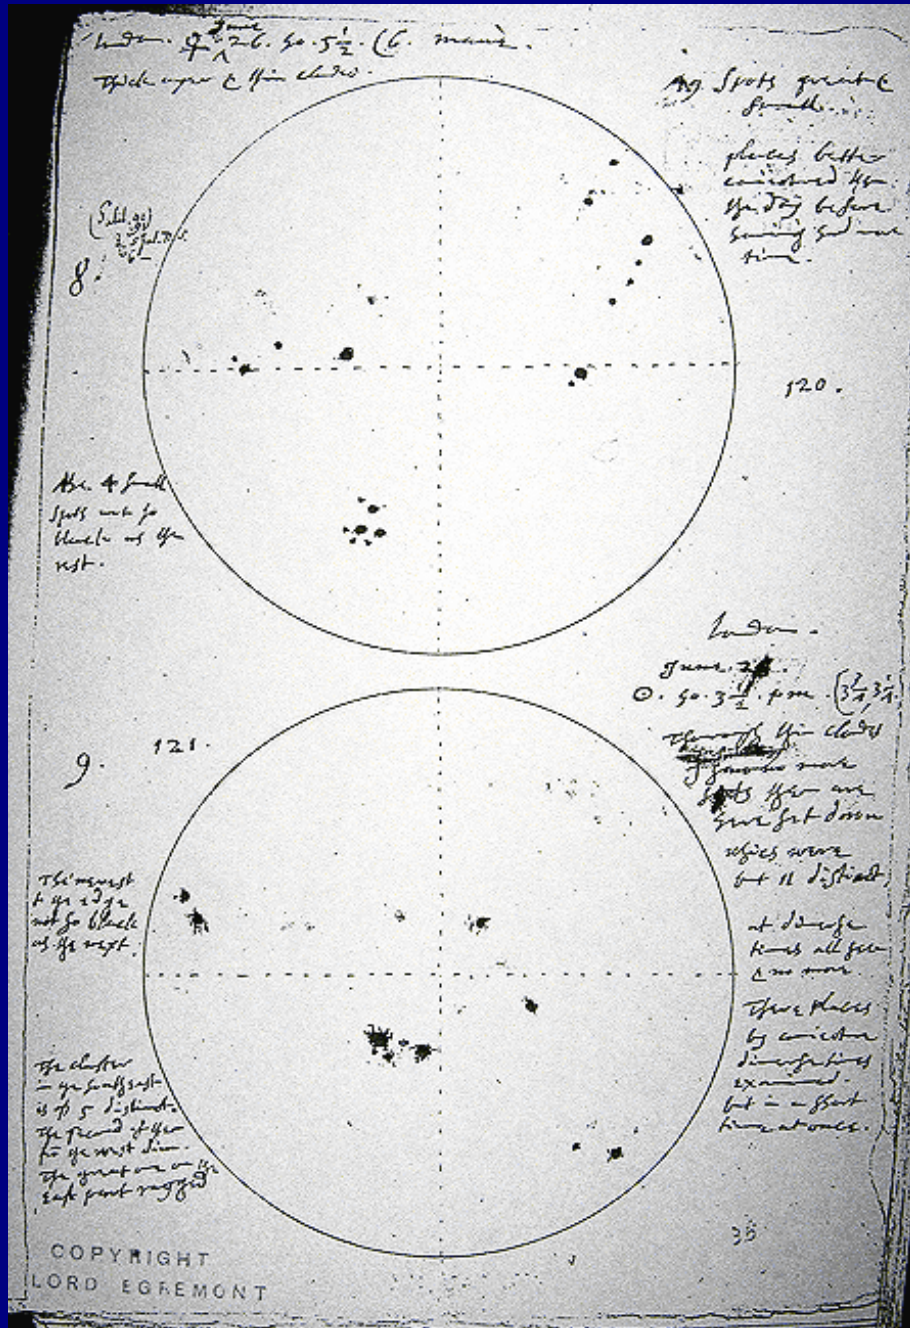 London. ♀ June 26. ho. 5½. (6. mane.
Thick ayer & thin cloudes.
19 Spots great &
small.
places better
considered then
the day before
having had more
time.
8.
120.
The 4 small
spots not so
black as the
rest.
London.
June. 2
☉. ho. 3½. p.m.
Through thin cloudes
more
spots then are
here set down
which were
but 11 distinct
at diverse
times all seen
& no more.
There places
by
diverse times
examined.
but in a short
time at once.
9.
121.
The nerest
to the edge
not so black
as the next.
The cluster
in the southeast
is of 5 distinct.
The second of them
to the west dim.
The great one on the
East part ragged
35
COPYRIGHT
LORD EGREMONT